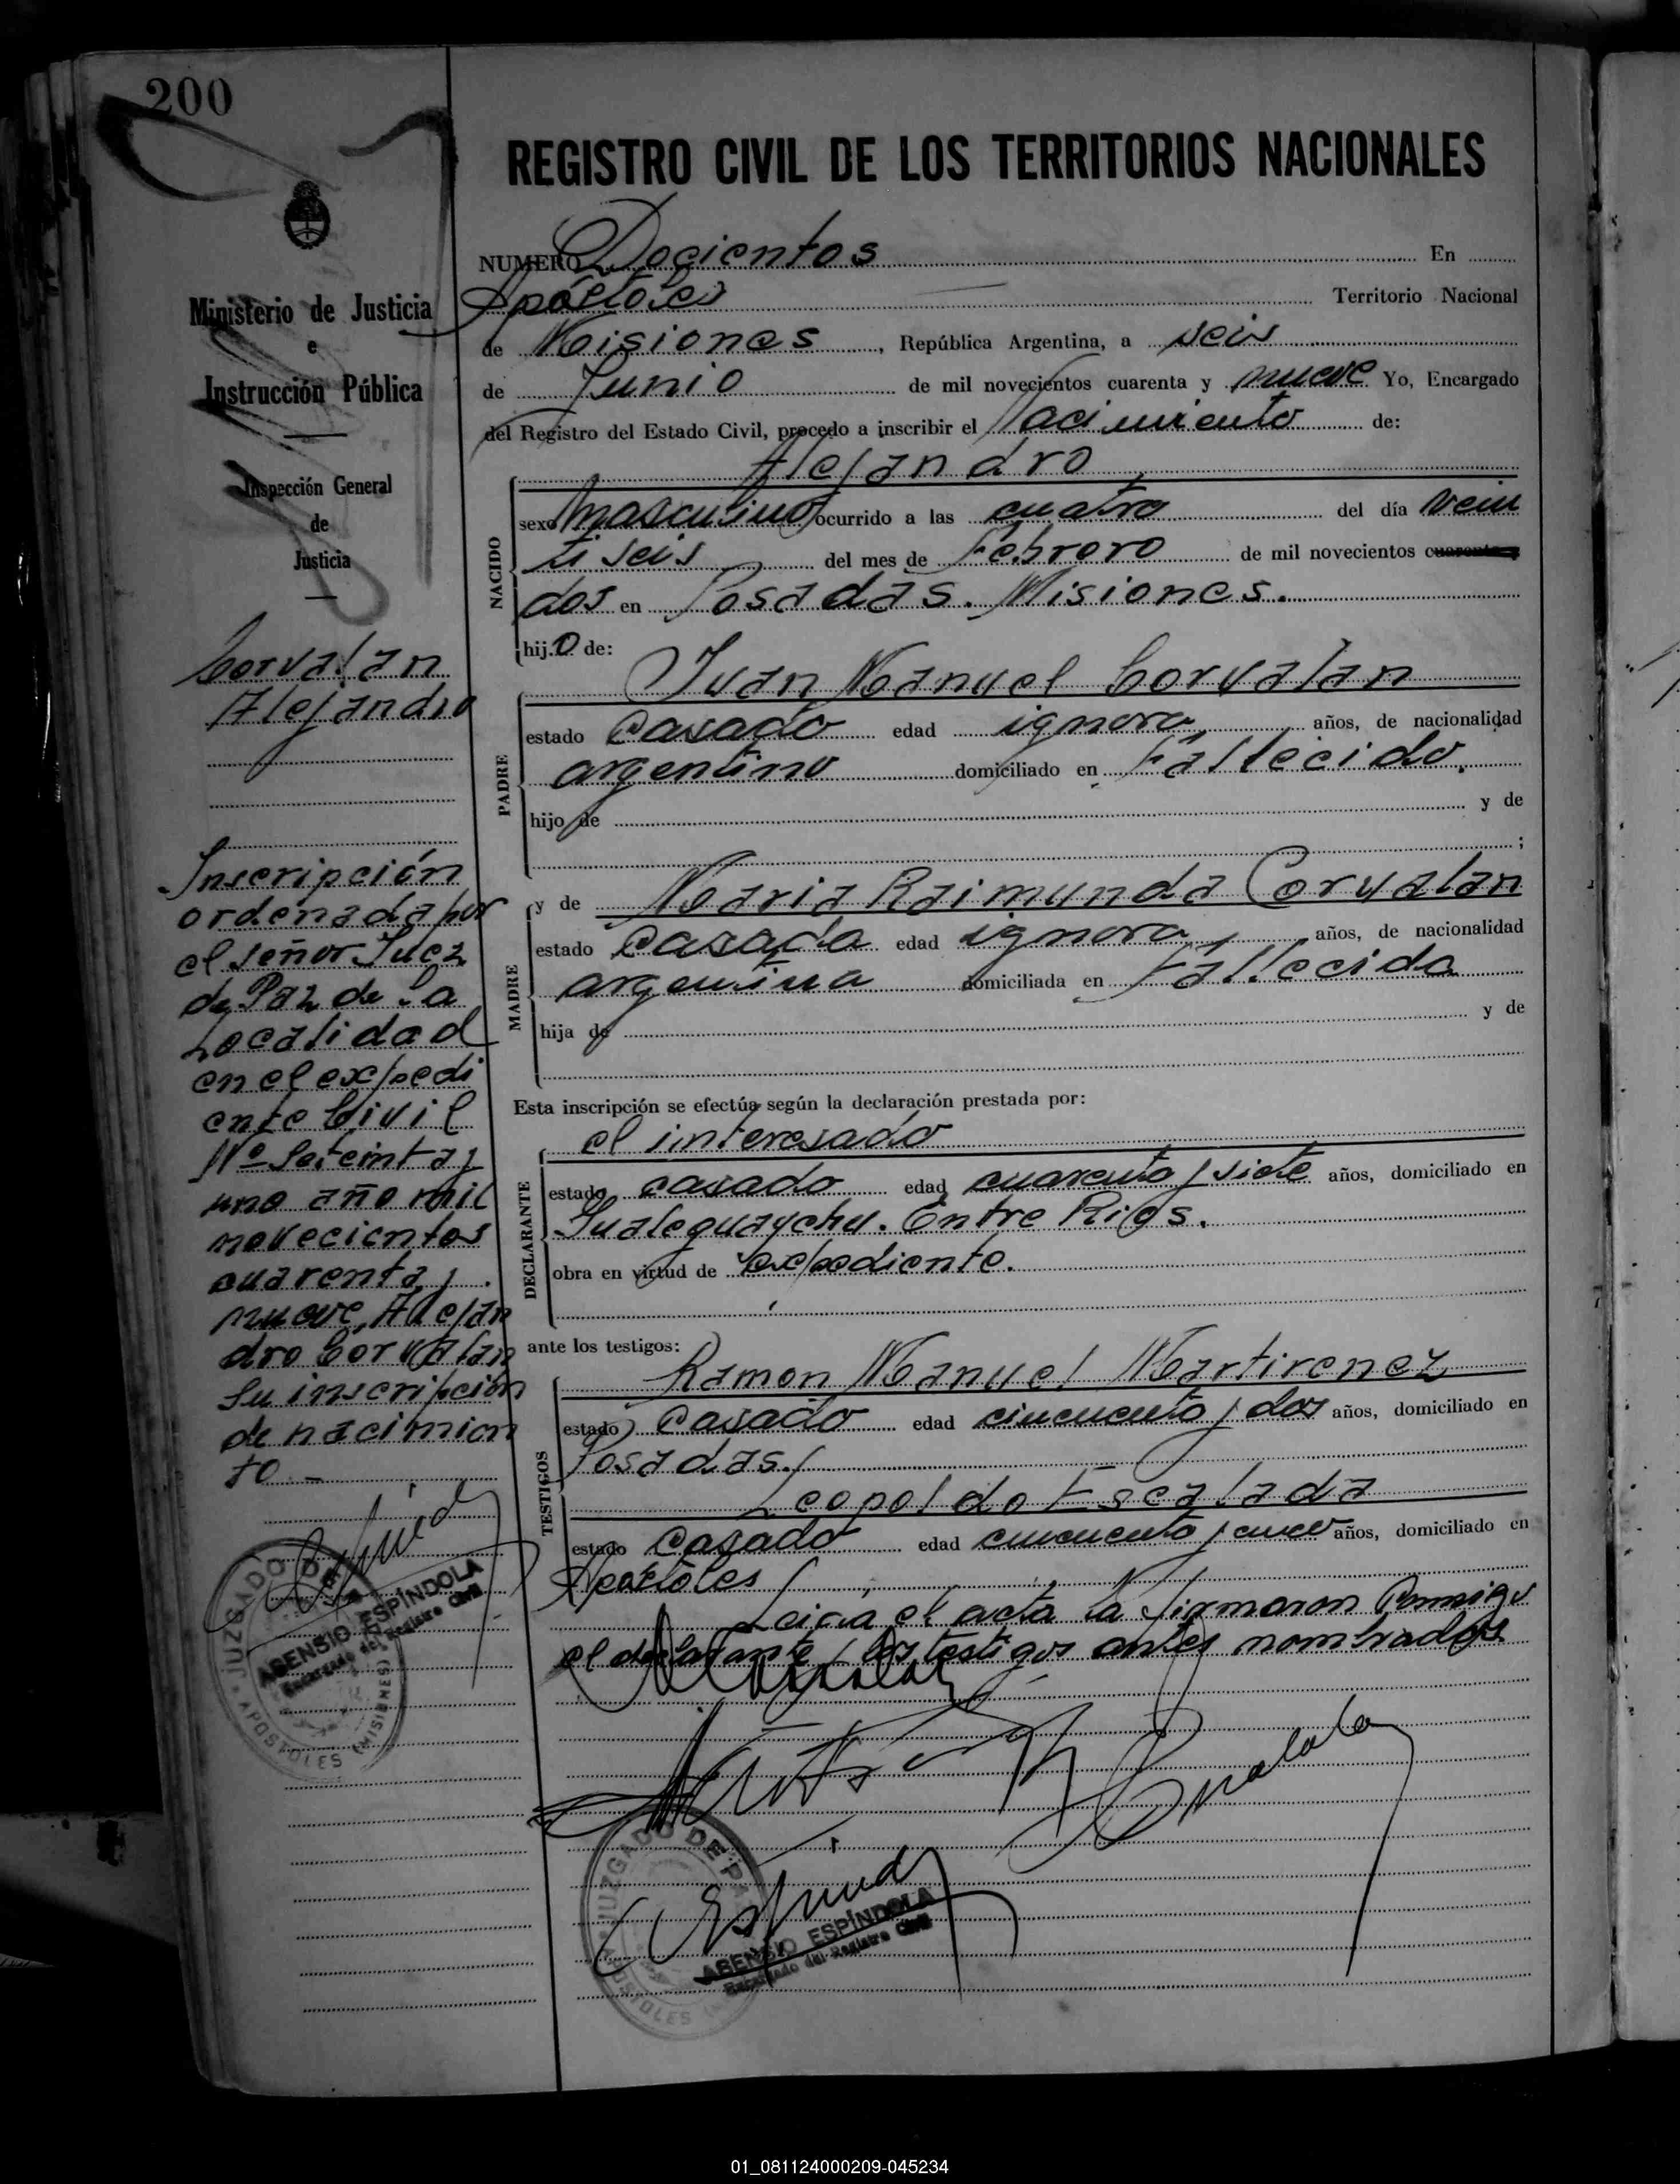 200
REGISTRO CIVIL DE LOS TERRITORIOS NACIONALES
NUMERO Docientos En
Apóstoles Territorio Nacional
de Misiones, República Argentina, a seis
de Junio de mil novecientos cuarenta y nueve Yo, Encargado
del Registro del Estado Civil, procedo a inscribir el Nacimiento de:
Alejandro
NACIDO
sexo Masculino ocurrido a las cuatro del día vein
ti seis del mes de Febrero de mil novecientos cuarenta y
dos en Posadas. Misiones.
hijo de:
Juan Manuel Corvalan
PADRE
estado Casado edad ignora años, de nacionalidad
argentino domiciliado en Fallecido.
hijo de y de
;
y de Maria Raimunda Corvalan
MADRE
estado Casada edad ignora años, de nacionalidad
argentina domiciliada en Fallecida
hija de y de
Esta inscripción se efectúa según la declaración prestada por:
el interesado
DECLARANTE
estado casado edad cuarenta y siete años, domiciliado en
Gualeguaychu. Entre Rios.
obra en virtud de expediente.
ante los testigos:
Ramon Manuel Martirenez
TESTIGOS
estado Casado edad cincuenta y dos años, domiciliado en
Posadas.
Leopoldo Escalada
estado Casado edad cincuenta y cinco años, domiciliado en
Apóstoles
Leida el acta la firmaron conmigo
el declarante y los testigos antes nombrados
JUZGADO DE PAZ
APOSTOLES
ASENSIO ESPÍNDOLA
Encargado del Registro Civil
Ministerio de Justicia
e
Instrucción Pública
Inspección General
de
Justicia
Corvalan
Alejandro
Inscripción
ordenada por
el señor Juez
de Paz de la
Localidad
en el expedi
ente Civil
Nº Setenta y
uno año mil
novecientos
cuarenta y
nueve, Alejan
dro Corvalan
su inscripción
de nacimien
to -
JUZGADO DE
APOSTOLES (MISIONES)
ASENSIO ESPÍNDOLA
Encargado del Registro Civil
01_081124000209-045234